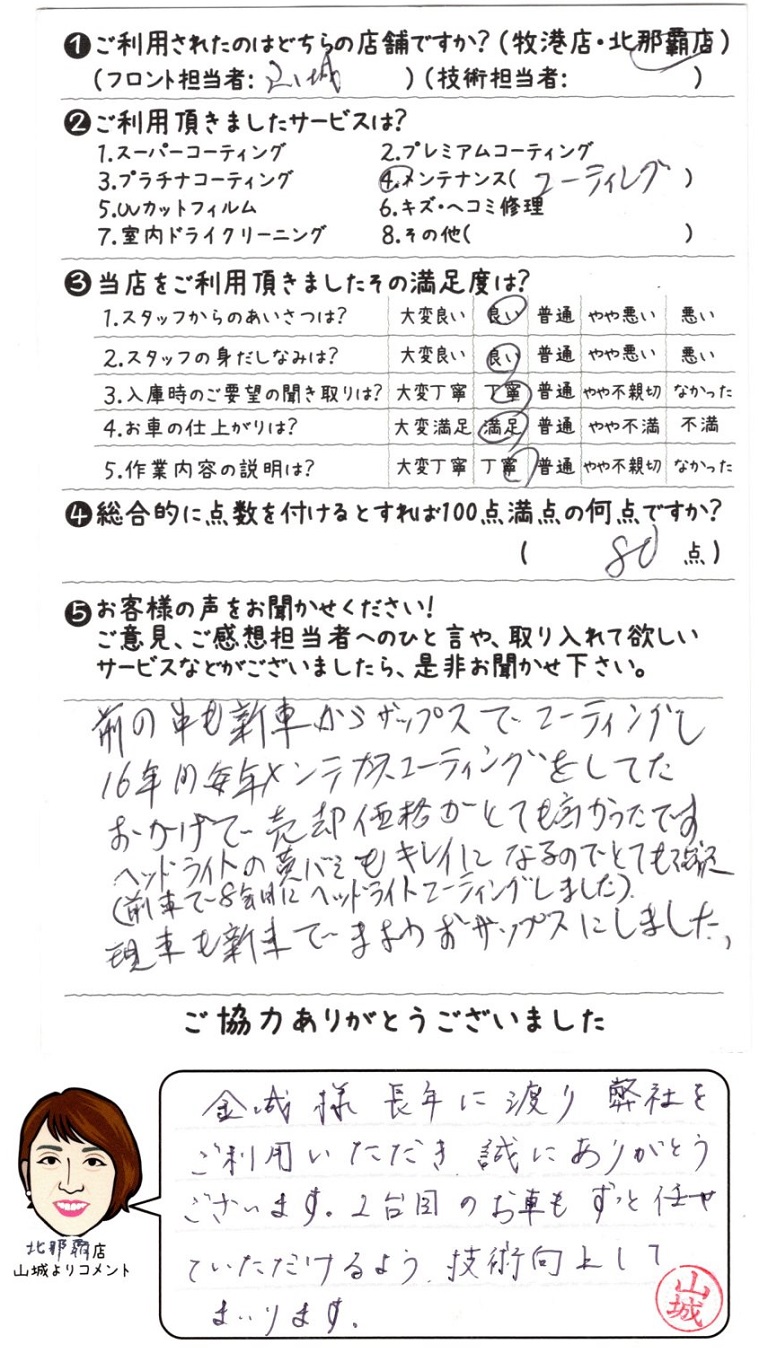 ❶ご利用されたのはどちらの店舗ですか?(牧港店・北那覇店)
(フロント担当者: 山城 )(技術担当者: )
❷ご利用頂きましたサービスは?
1.スーパーコーティング 2.プレミアムコーティング
3.プラチナコーティング 4.メンテナンス( コーティング )
5.UVカットフィルム 6.キズ・ヘコミ修理
7.室内ドライクリーニング 8.その他( )
❸当店をご利用頂きましたその満足度は?
1.スタッフからのあいさつは? 大変良い 良い 普通 やや悪い 悪い
2.スタッフの身だしなみは? 大変良い 良い 普通 やや悪い 悪い
3.入庫時のご要望の聞き取りは? 大変丁寧 丁寧 普通 やや不親切 なかった
4.お車の仕上がりは? 大変満足 満足 普通 やや不満 不満
5.作業内容の説明は? 大変丁寧 丁寧 普通 やや不親切 なかった
❹総合的に点数を付けるとすれば100点満点の何点ですか?
( 80 点)
❺お客様の声をお聞かせください!
ご意見、ご感想担当者へのひと言や、取り入れて欲しい
サービスなどがございましたら、是非お聞かせ下さい。
前の車も新車からザップスでコーティングし
16年間毎年メンテナンスコーティングをしてた
おかげで売却価格がとても高かったです
ヘッドライトの黄ばみもキレイになるのでとても
(前車で8年目にヘッドライトコーティングしました)
現車も新車でまよわずザップスにしました。
ご協力ありがとうございました
金城様 長年に渡り弊社を
ご利用いただき 誠にありがとう
ございます。2台目のお車もずっと任せ
ていただけるよう、技術向上して
まいります。
山城
北那覇店
山城よりコメント